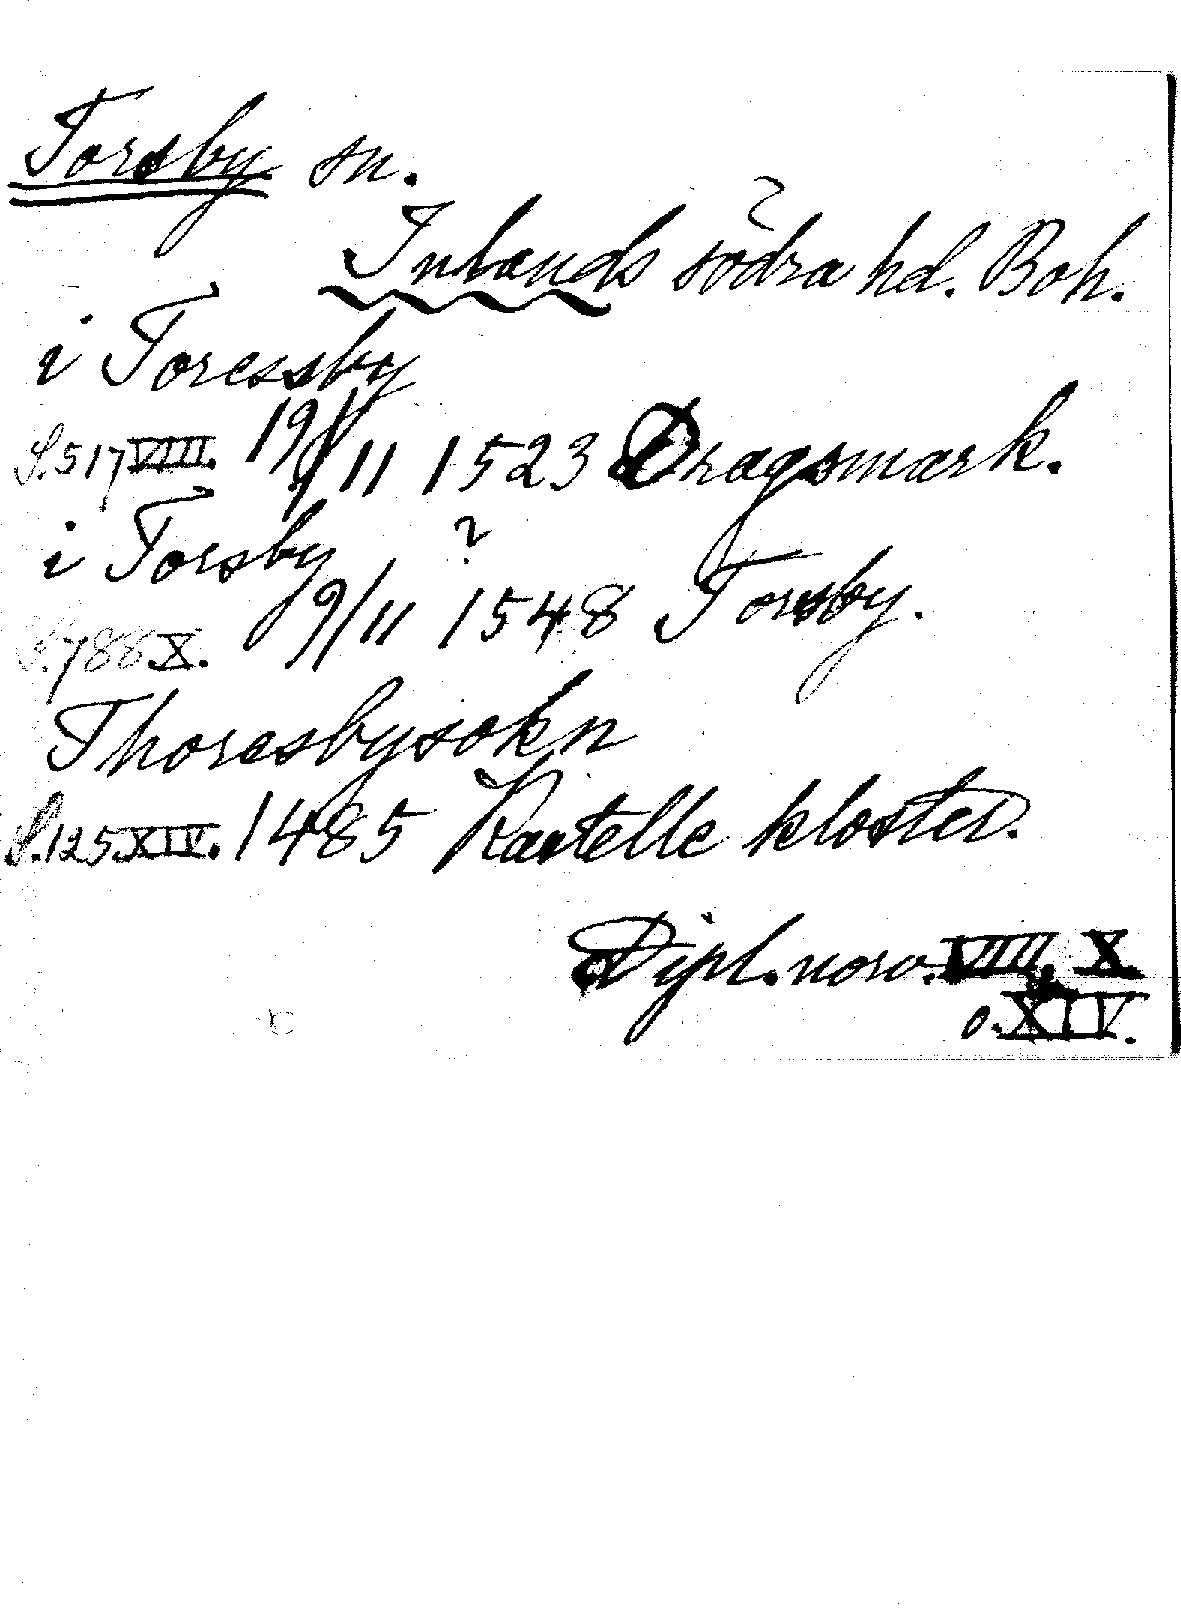 Torsby sn.
Inlands södra hd. Boh.
i Toressby
S. 517 VIII. 19/11 1523 Dragsmark.
i Torsby ?
S. 788 X. 9/11 1548 Torsby.
Thoresbysokn
S. 125 XIV. 1485 Kastelle kloster.
Dipl. norv. VIII, X
o. XIV.